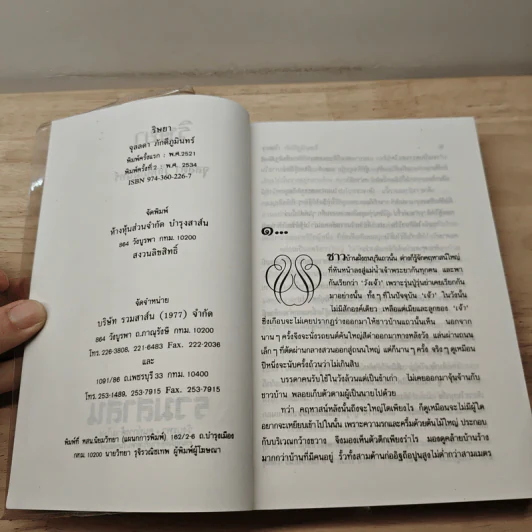 ริษยา
จุลลดา ภักดีภูมินทร์
พิมพ์ครั้งแรก : พ.ศ.2521
พิมพ์ครั้งที่ 2 : พ.ศ. 2534
ISBN 974-360-226-7
จัดพิมพ์
ห้างหุ้นส่วนจำกัด บำรุงสาส์น
864 วังบูรพา กทม. 10200
สงวนลิขสิทธิ์
จัดจำหน่าย
บริษัท รวมสาส์น (1977) จำกัด
864 วังบูรพา ถ.ภาณุรังษี กทม. 10200
โทร.226-3808, 221-6483 Fax. 222-2036
และ
1091/86 ถ.เพชรบุรี 33 กทม. 10400
โทร.253-1489, 253-7915 Fax. 253-7915
พิมพ์ที่ ทสนนิยมวิทยา (แผนกการพิมพ์) 162/2-6 ถ.บำรุงเมือง
กทม.10200 นายวิทยา รุจิรวณิชเทพ ผู้พิมพ์ผู้โฆษณา
๑...
ชาวบ้านฝั่งธนบุรีแถวนั้น ต่างก็รู้จักคฤหาสน์ใหญ่
ที่หันหน้าลงสู่แม่น้ำเจ้าพระยากันทุกคน และพา
กันเรียกว่า 'วังเจ้า' เพราะรุ่นปู่รุ่นย่าเคยเรียกกัน
มาอย่างนั้น ทั้งๆ ที่ในปัจจุบัน 'เจ้า' ในวังนั้น
ไม่มีสักองค์เดียว เหลือแต่เมียและลูกของ 'เจ้า'
ซึ่งเกือบจะไม่เคยปรากฏร่างออกมาให้ชาวบ้านแถวนั้นเห็น นอกจาก
นานๆ ครั้งจึงจะนั่งรถยนต์คันใหญ่สีดำออกมาทางหลังวัง แล่นผ่านถนน
เล็กๆ ที่ตัดผ่านกลางสวนออกสู่ถนนใหญ่ แต่ก็นานๆ ครั้ง จริงๆ ดูเหมือน
ปีหนึ่งจะนับครั้งถ้วนว่าไม่เกินสิบ
บรรดาคนรับใช้ในวังล้วนแต่เป็นข้าเก่า ไม่เคยออกมาจุ้นจ้านกับ
ชาวบ้าน พลอยเก็บตัวตามผู้เป็นนายไปด้วย
ทว่า คฤหาสน์หลังนั้นถึงจะใหญ่โตเพียงไร ก็ดูเหมือนจะไม่มีผู้ใด
อยากจะเหยียบเข้าไปในนั้น เพราะความรกและครึ้มด้วยต้นไม้ใหญ่ ประกอบ
กับบริเวณกว้างขวาง จึงมองเห็นตัวตึกเพียงรำไร มองดูคล้ายบ้านร้าง
มากกว่าบ้านที่มีคนอยู่ รั้วทั้งสามด้านก่ออิฐถือปูนสูงไม่ต่ำกว่าสามเมตร